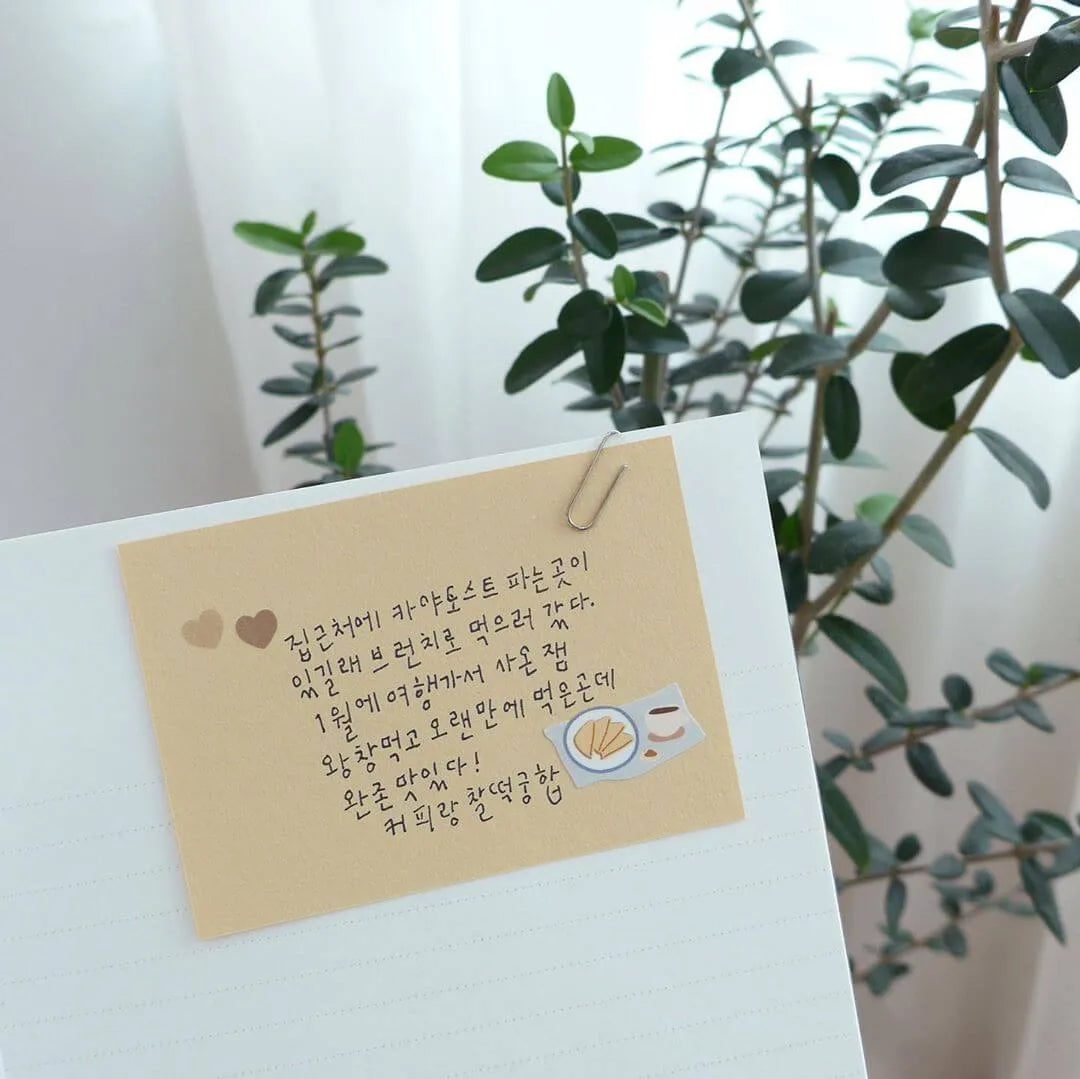 집근처에 카야토스트 파는곳이
있길래 브런치로 먹으러 갔다.
1월에 여행가서 사온 잼
왕창먹고 오랜만에 먹은곤데
완존맛있다!
커피랑 찰떡궁합